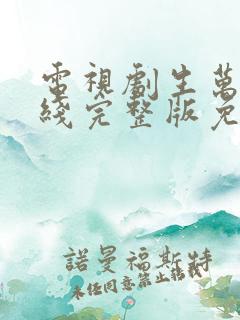 電視劇生萬
綫完整版免
諾曼福斯特
未經同意禁止轉載